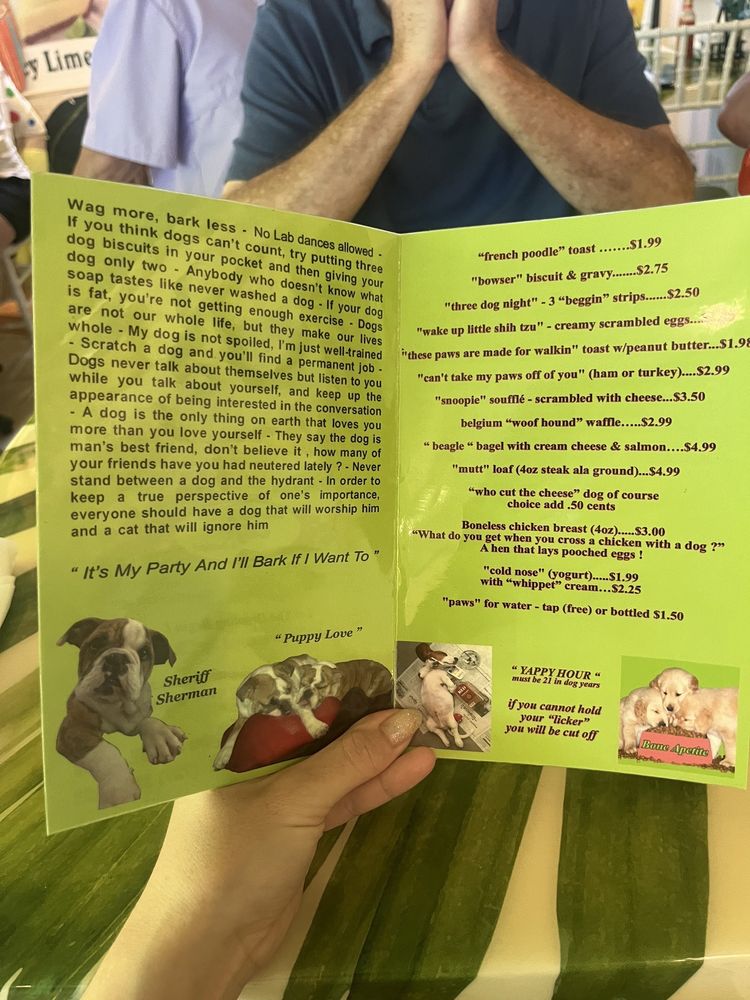 y Lime
Wag more, bark less - No Lab dances allowed -
If you think dogs can't count, try putting three
dog biscuits in your pocket and then giving your
dog only two - Anybody who doesn't know what
soap tastes like never washed a dog - If your dog
is fat, you're not getting enough exercise - Dogs
are not our whole life, but they make our lives
whole - My dog is not spoiled, I'm just well-trained
- Scratch a dog and you'll find a permanent job -
Dogs never talk about themselves but listen to you
while you talk about yourself, and keep up the
appearance of being interested in the conversation
- A dog is the only thing on earth that loves you
more than you love yourself - They say the dog is
man's best friend, don't believe it , how many of
your friends have you had neutered lately ? - Never
stand between a dog and the hydrant - In order to
keep a true perspective of one's importance,
everyone should have a dog that will worship him
and a cat that will ignore him
" It's My Party And I'll Bark If I Want To "
" Puppy Love "
Sheriff
Sherman
"french poodle" toast .......$1.99
"bowser" biscuit & gravy.......$2.75
"three dog night" - 3 "beggin" strips......$2.50
"wake up little shih tzu" - creamy scrambled eggs....
"these paws are made for walkin" toast w/peanut butter...$1.98
"can't take my paws off of you" (ham or turkey)....$2.99
"snoopie" soufflé - scrambled with cheese...$3.50
belgium "woof hound" waffle.....$2.99
" beagle " bagel with cream cheese & salmon....$4.99
"mutt" loaf (4oz steak ala ground)...$4.99
"who cut the cheese" dog of course
choice add .50 cents
Boneless chicken breast (4oz).....$3.00
"What do you get when you cross a chicken with a dog ?"
A hen that lays pooched eggs !
"cold nose" (yogurt).....$1.99
with "whippet" cream...$2.25
"paws" for water - tap (free) or bottled $1.50
" YAPPY HOUR "
must be 21 in dog years
if you cannot hold
your "licker"
you will be cut off
Bone Apetite